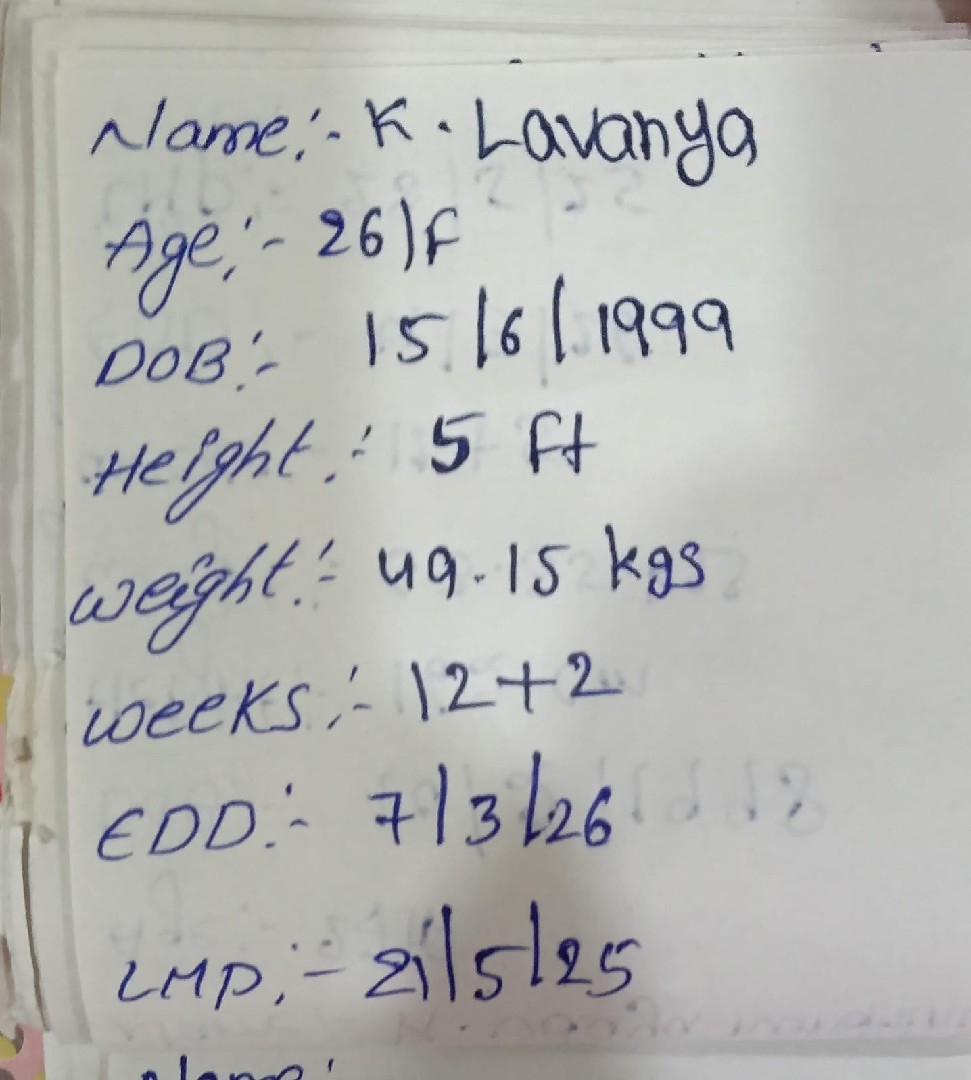 Name:- K. Lavanya
Age:- 26/F
DOB:- 15/6/1999
Height:- 5 ft
Weight:- 49.15 kgs
Weeks:- 12+2
EDD:- 7/3/26
LMP:- 21/5/25
Name: